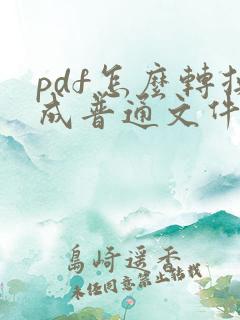 pdf怎麼轉換
成普通文件
島崎遥香
未任同意禁止转载